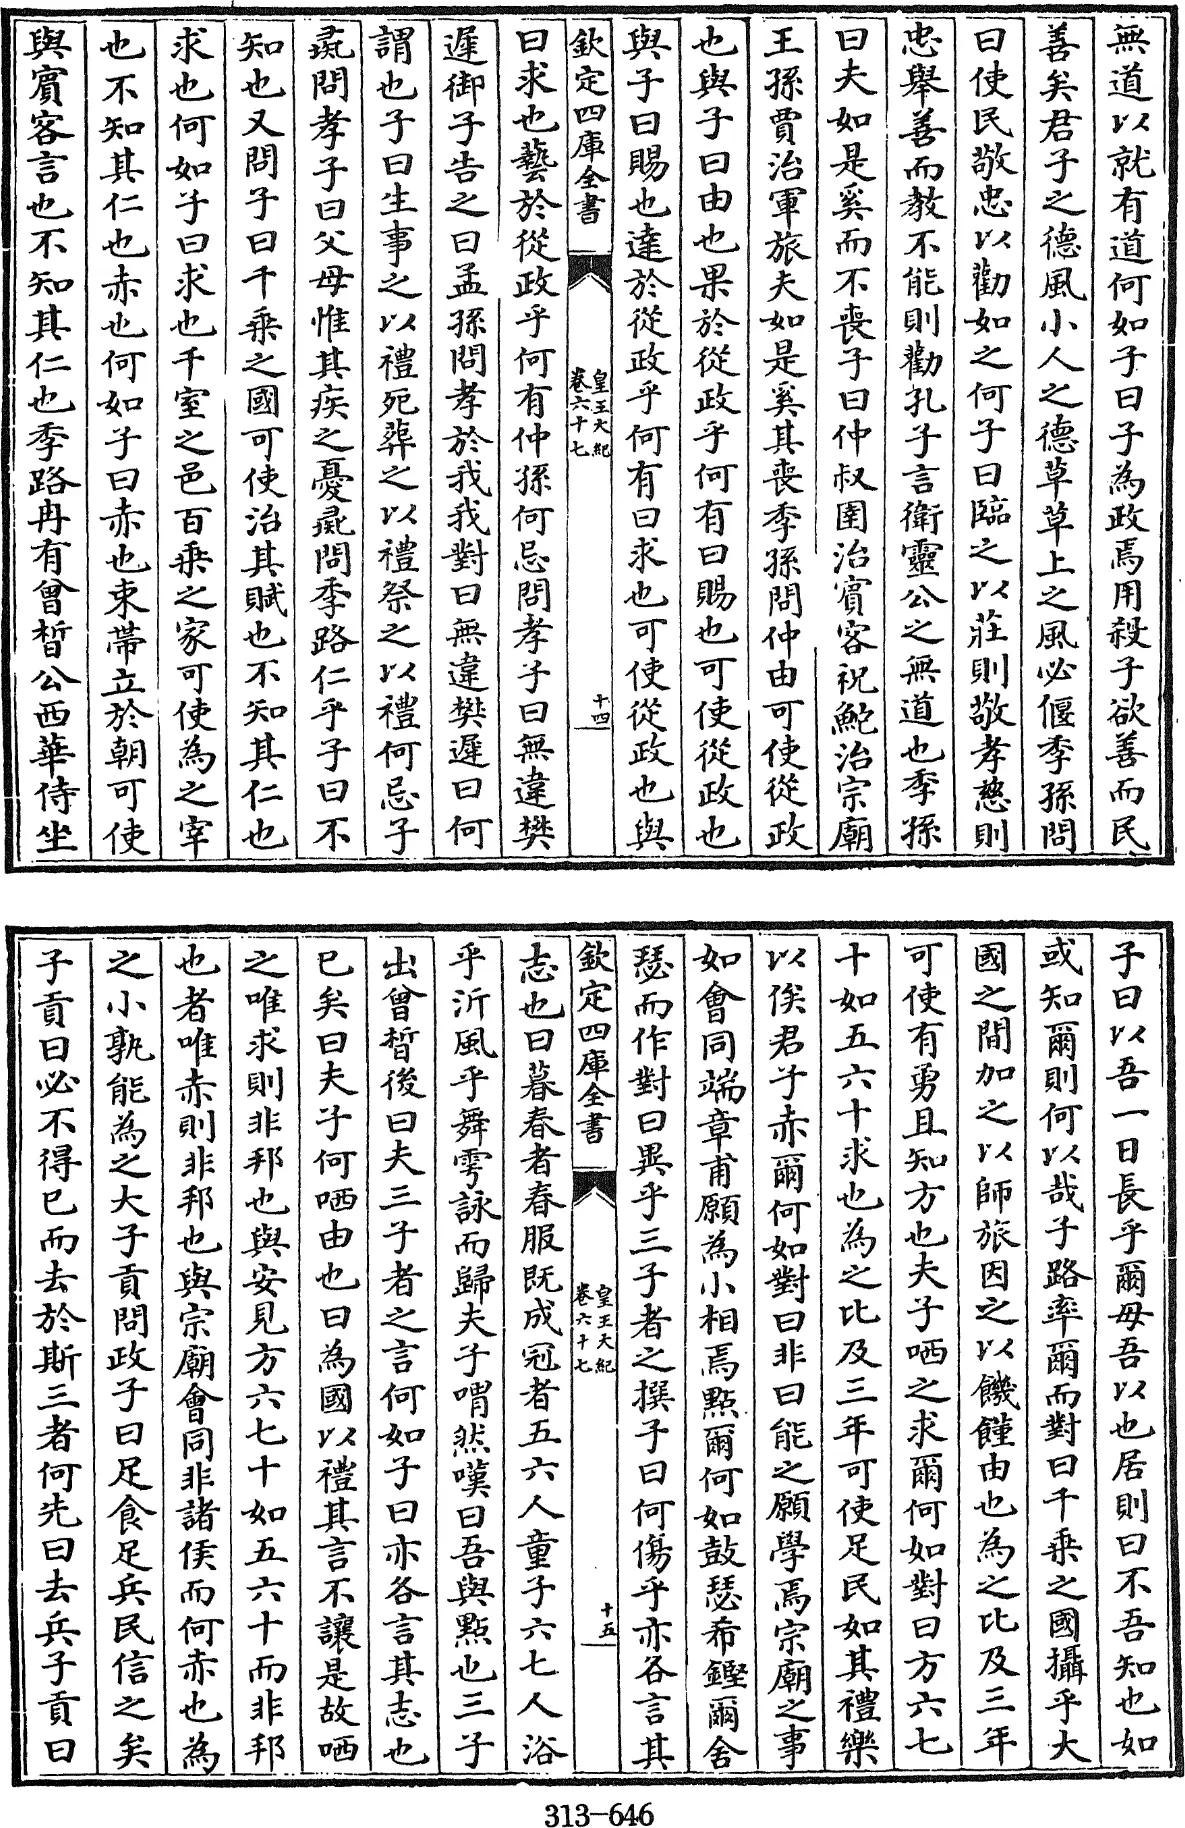 無道以就有道何如子曰子為政焉用殺子欲善而民
善矣君子之德風小人之德草草上之風必偃季孫問
曰使民敬忠以勸如之何子曰臨之以莊則敬孝慈則
忠舉善而教不能則勸孔子言衛靈公之無道也季孫
曰夫如是奚而不喪子曰仲叔圉治賓客祝鮀治宗廟
王孫賈治軍旅夫如是奚其喪季孫問仲由可使從政
也與子曰由也果於從政乎何有曰賜也可使從政也
與子曰賜也達於從政乎何有曰求也可使從政也與
欽定四庫全書
皇王大紀
卷六十七
十四
曰求也藝於從政乎何有仲孫何忌問孝子曰無違樊
遲御子告之曰孟孫問孝於我我對曰無違樊遲曰何
謂也子曰生事之以禮死葬之以禮祭之以禮何忌子
彘問孝子曰父母惟其疾之憂彘問季路仁乎子曰不
知也又問子曰千乘之國可使治其賦也不知其仁也
求也何如子曰求也千室之邑百乘之家可使為之宰
也不知其仁也赤也何如子曰赤也束帶立於朝可使
與賓客言也不知其仁也季路冉有曾晳公西華侍坐
子曰以吾一日長乎爾毋吾以也居則曰不吾知也如
或知爾則何以哉子路率爾而對曰千乘之國攝乎大
國之間加之以師旅因之以饑饉由也為之比及三年
可使有勇且知方也夫子哂之求爾何如對曰方六七
十如五六十求也為之比及三年可使足民如其禮樂
以俟君子赤爾何如對曰非曰能之願學焉宗廟之事
如會同端章甫願為小相焉點爾何如鼓瑟希鏗爾舍
瑟而作對曰異乎三子者之撰子曰何傷乎亦各言其
欽定四庫全書
皇王大紀
卷六十七
十五
志也曰暮春者春服既成冠者五六人童子六七人浴
乎沂風乎舞雩詠而歸夫子喟然嘆曰吾與點也三子
出曾晳後曰夫三子者之言何如子曰亦各言其志也
已矣曰夫子何哂由也曰為國以禮其言不讓是故哂
之唯求則非邦也與安見方六七十如五六十而非邦
也者唯赤則非邦也與宗廟會同非諸侯而何赤也為
之小孰能為之大子貢問政子曰足食足兵民信之矣
子貢曰必不得已而去於斯三者何先曰去兵子貢曰
313-646